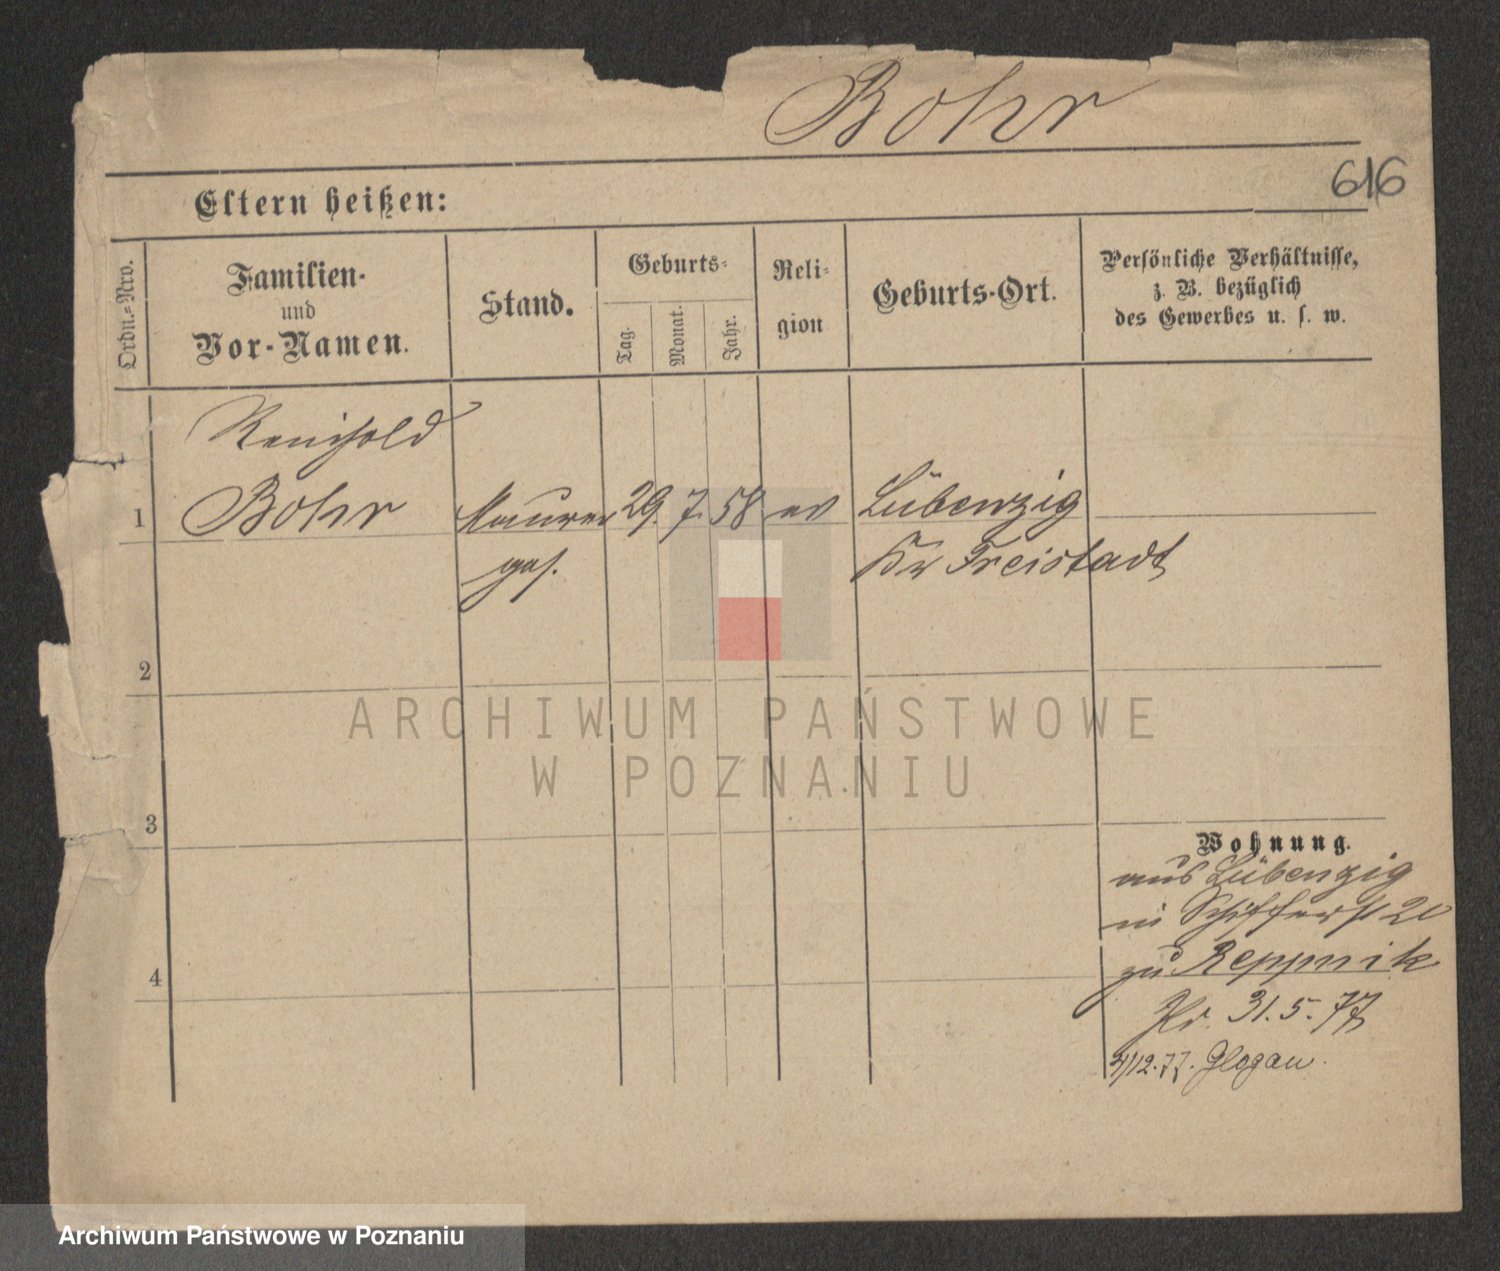 Bohr
616
Eltern heißen:
Ordn.-Nro.
Familien-
und
Vor-Namen.
Stand.
Geburts-
Tag.
Monat.
Jahr.
Reli-
gion
Geburts-Ort.
Persönliche Verhältnisse,
z. B. bezüglich
des Gewerbes u. s. w.
Reinhold
1 Bohr Maurer 29. 7. 58 ev Lübenzig
ges. Kr Freistadt
2
3
4
Wohnung.
aus Lübenzig
in Schifferst 20
zu Reppnik
31.5.77
4/12.77. Glogau.
ARCHIWUM PAŃSTWOWE
W POZNANIU
Archiwum Państwowe w Poznaniu